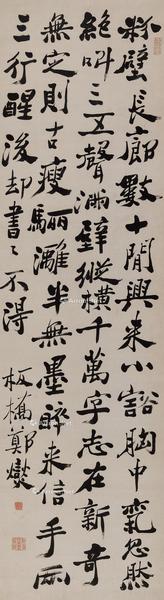 粉壁長廊數十間興來小豁胸中氣忽然
絕叫三五聲滿壁縱橫千萬字志在新奇
無定則古瘦驪灕半無墨醉來信手兩
三行醒後却書々不得
板橋鄭燮